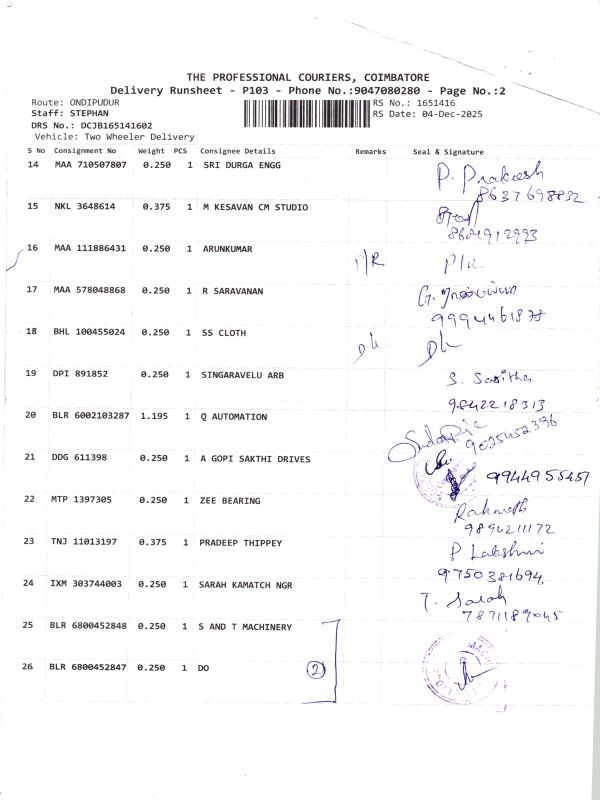 THE PROFESSIONAL COURIERS, COIMBATORE
Delivery Runsheet - P103 - Phone No.:9047080280 - Page No.:2
Route: ONDIPUDUR RS No.: 1651416
Staff: STEPHAN RS Date: 04-Dec-2025
DRS No.: DCJB165141602
Vehicle: Two Wheeler Delivery
S No Consignment No Weight PCS Consignee Details Remarks Seal & Signature
14 MAA 710507807 0.250 1 SRI DURGA ENGG P. Prakash
8637698832
15 NKL 3648614 0.375 1 M KESAVAN CM STUDIO
16 MAA 111886431 0.250 1 ARUNKUMAR P/R P/R
17 MAA 578048868 0.250 1 R SARAVANAN
18 BHL 100455024 0.250 1 SS CLOTH DL DL
19 DPI 891852 0.250 1 SINGARAVELU ARB S. Savitha
9842218313
20 BLR 6002103287 1.195 1 Q AUTOMATION
9025452396
21 DDG 611398 0.250 1 A GOPI SAKTHI DRIVES
22 MTP 1397305 0.250 1 ZEE BEARING
9894211172
23 TNJ 11013197 0.375 1 PRADEEP THIPPEY P Lakshmi
9750381694
24 IXM 303744003 0.250 1 SARAH KAMATCH NGR T. Sarah
7871189045
25 BLR 6800452848 0.250 1 S AND T MACHINERY
26 BLR 6800452847 0.250 1 DO 2